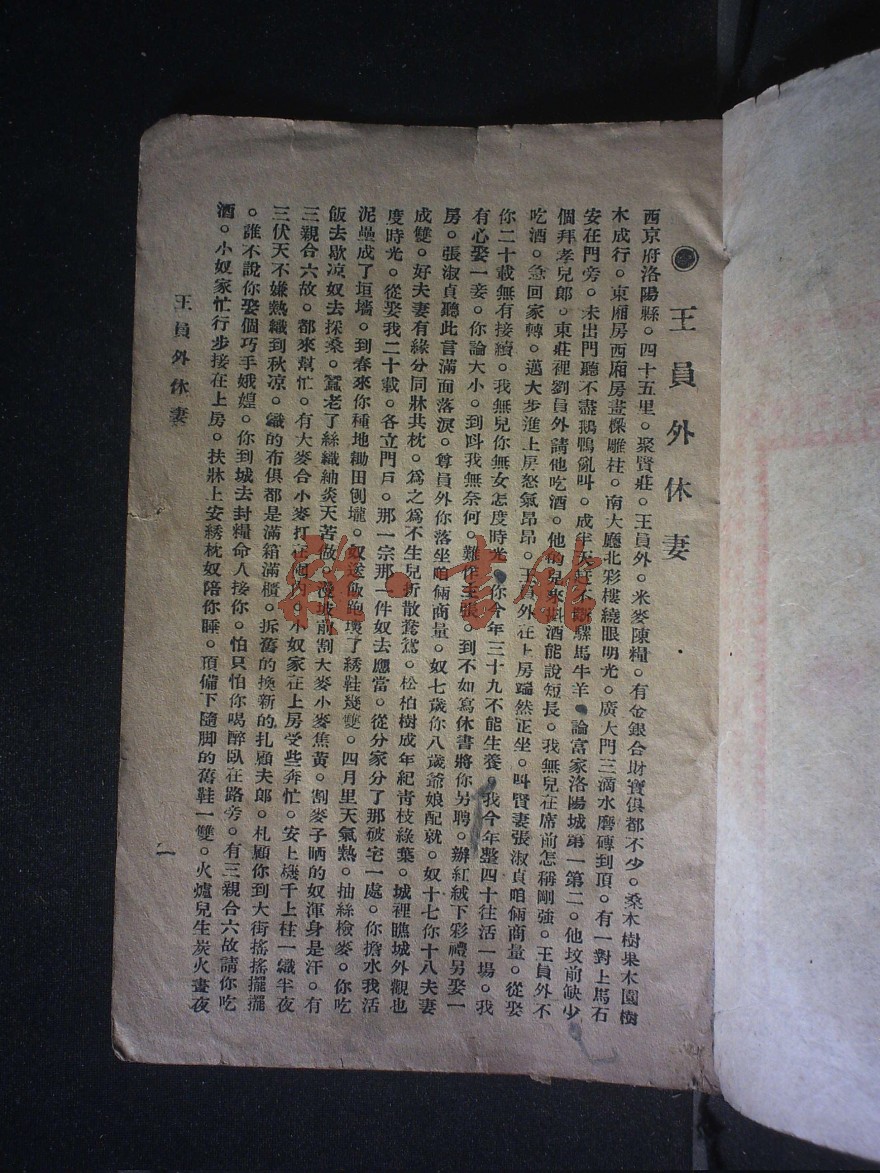 王員外休妻
西京府洛陽縣。四十五里。聚賢莊。王員外。米麥陳糧。有金銀合財寶俱都不少。桑木樹果木園樹
木成行。東廂房西廂房畫樑雕柱。南大廳北彩樓繞眼明光。廣大門三滴水磨磚到頂。有一對上馬石
安在門旁。未出門聽不盡鵝鴨亂叫。成半天赶不
騾馬牛羊。論富家洛陽城第一第二。他坟前缺少
個拜孝兒郎。東莊裡劉員外請他吃酒。他
兒來斟酒能說短長。我無兒在席前怎稱剛強。王員外不
吃酒。急回家轉。邁大步進上房怒氣昂昂。王員外在上房
然正坐。叫賢妻張淑貞咱倆商量。從娶
你二十載無有接續。我無兒你無女怎度時光。你今年三十九不能生養。我今年整四十往活一場。我
有心娶一妾。你論大小。到
我無奈何。難作主張。到不如寫休書將你另聘。辦紅絨下彩禮另娶一
房。張淑貞聽此言滿面落淚。尊員外你落坐咱倆商量。奴七歲你八歲爺娘配就。奴十七你十八夫妻
成雙。好夫妻有緣分同牀共枕。爲之爲不生兒折散鴛鴦。松柏樹成年紀青枝綠葉。城裡瞧城外觀也
度時光。從娶我二十載。各立門戶。那一宗那一件奴去應當。從分家分了那破宅一處。你擔水我活
泥壘成了垣墻。到春來你種地鋤田刨壠。奴送飯跑壞了綉鞋幾雙。四月里天氣熱。抽絲檢麥。你吃
飯去歇凉奴去採桑。蠶老了絲織紬炎天苦做。漫坡前割大麥小麥焦黃。割麥子晒的奴渾身是汗。有
三親合六故。都來幫忙。有大麥合小麥打在
內。小奴家在上房受些奔忙。安上機千上柱一織半夜
三伏天不嫌熱織到秋凉。織的布俱都是滿箱滿櫃。拆舊的換新的扎顧夫郎。札顧你到大街搖搖擺擺
。誰不說你娶個巧手娥媓。你到城去封糧命人接你。怕只怕你喝醉臥在路旁。有三親合六故請你吃
酒。小奴家忙行步接在上房。扶牀上安綉枕奴陪你睡。頂備下隨脚的舊鞋一雙。火爐兒生炭火晝夜
王員外休妻
一